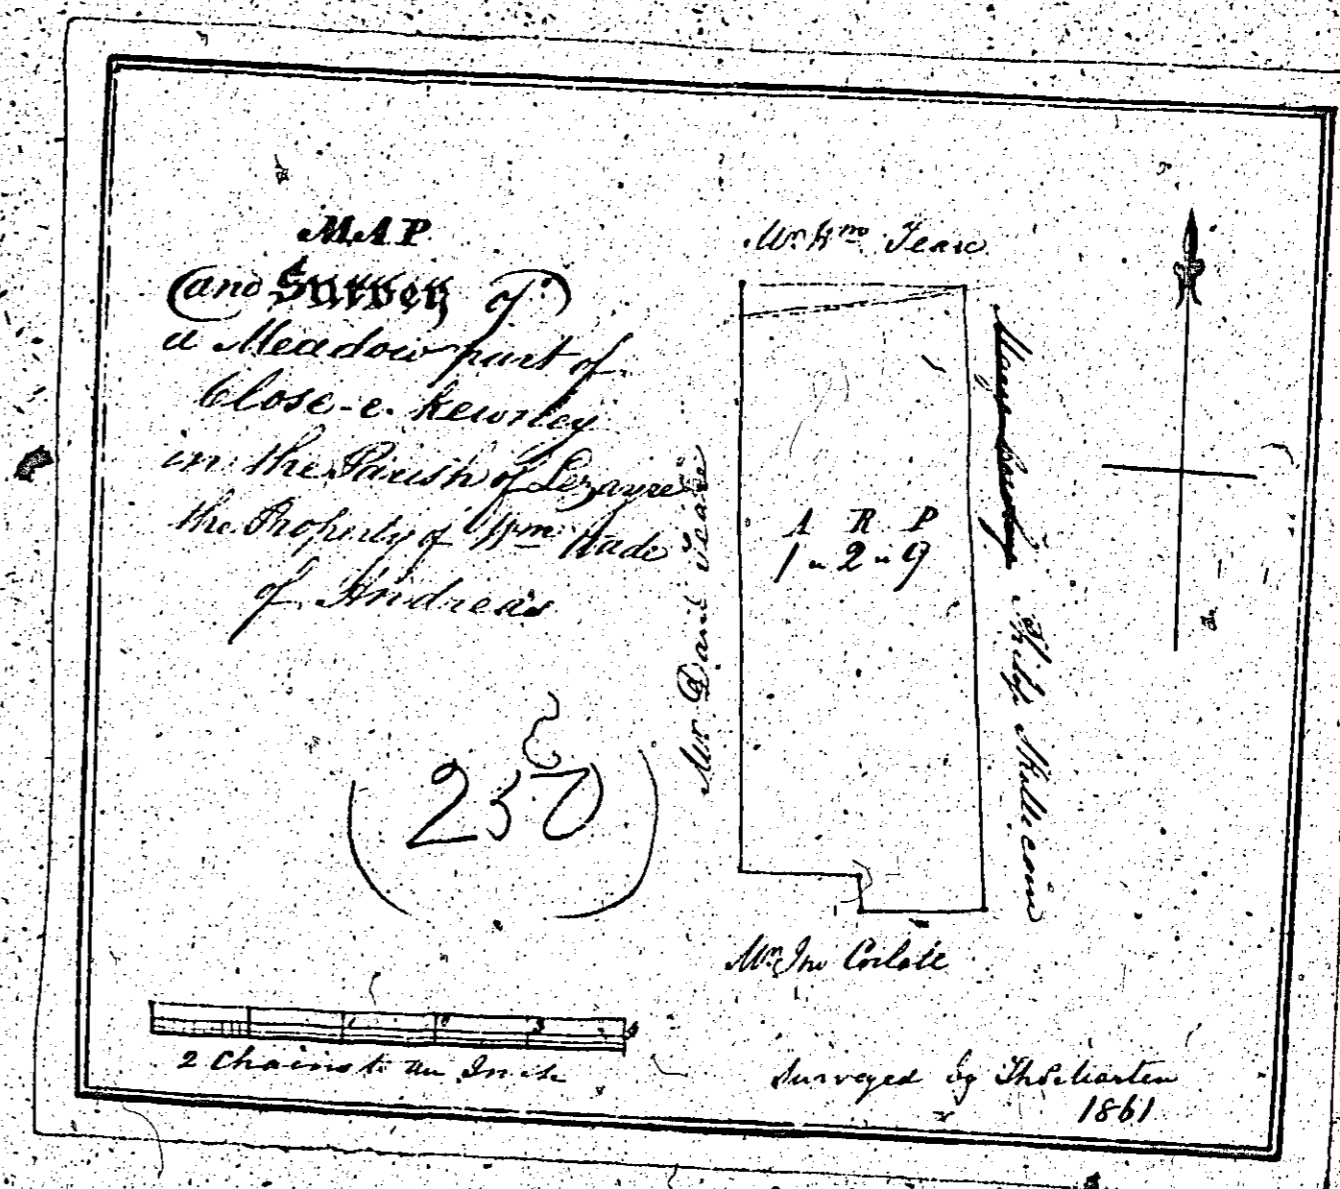 MAP
and Survey of
a Meadow part of
Close-e-Kewrley
in the Parish of Lezayre
the Property of Wm Kade
of Andreas
(250)
Mr Wm Teare
Mr Danl Teare
A R P
1 " 2 " 9
Philip
Mr Jno Corlett
2 Chains to an Inch
Surveyed by Thos
1861